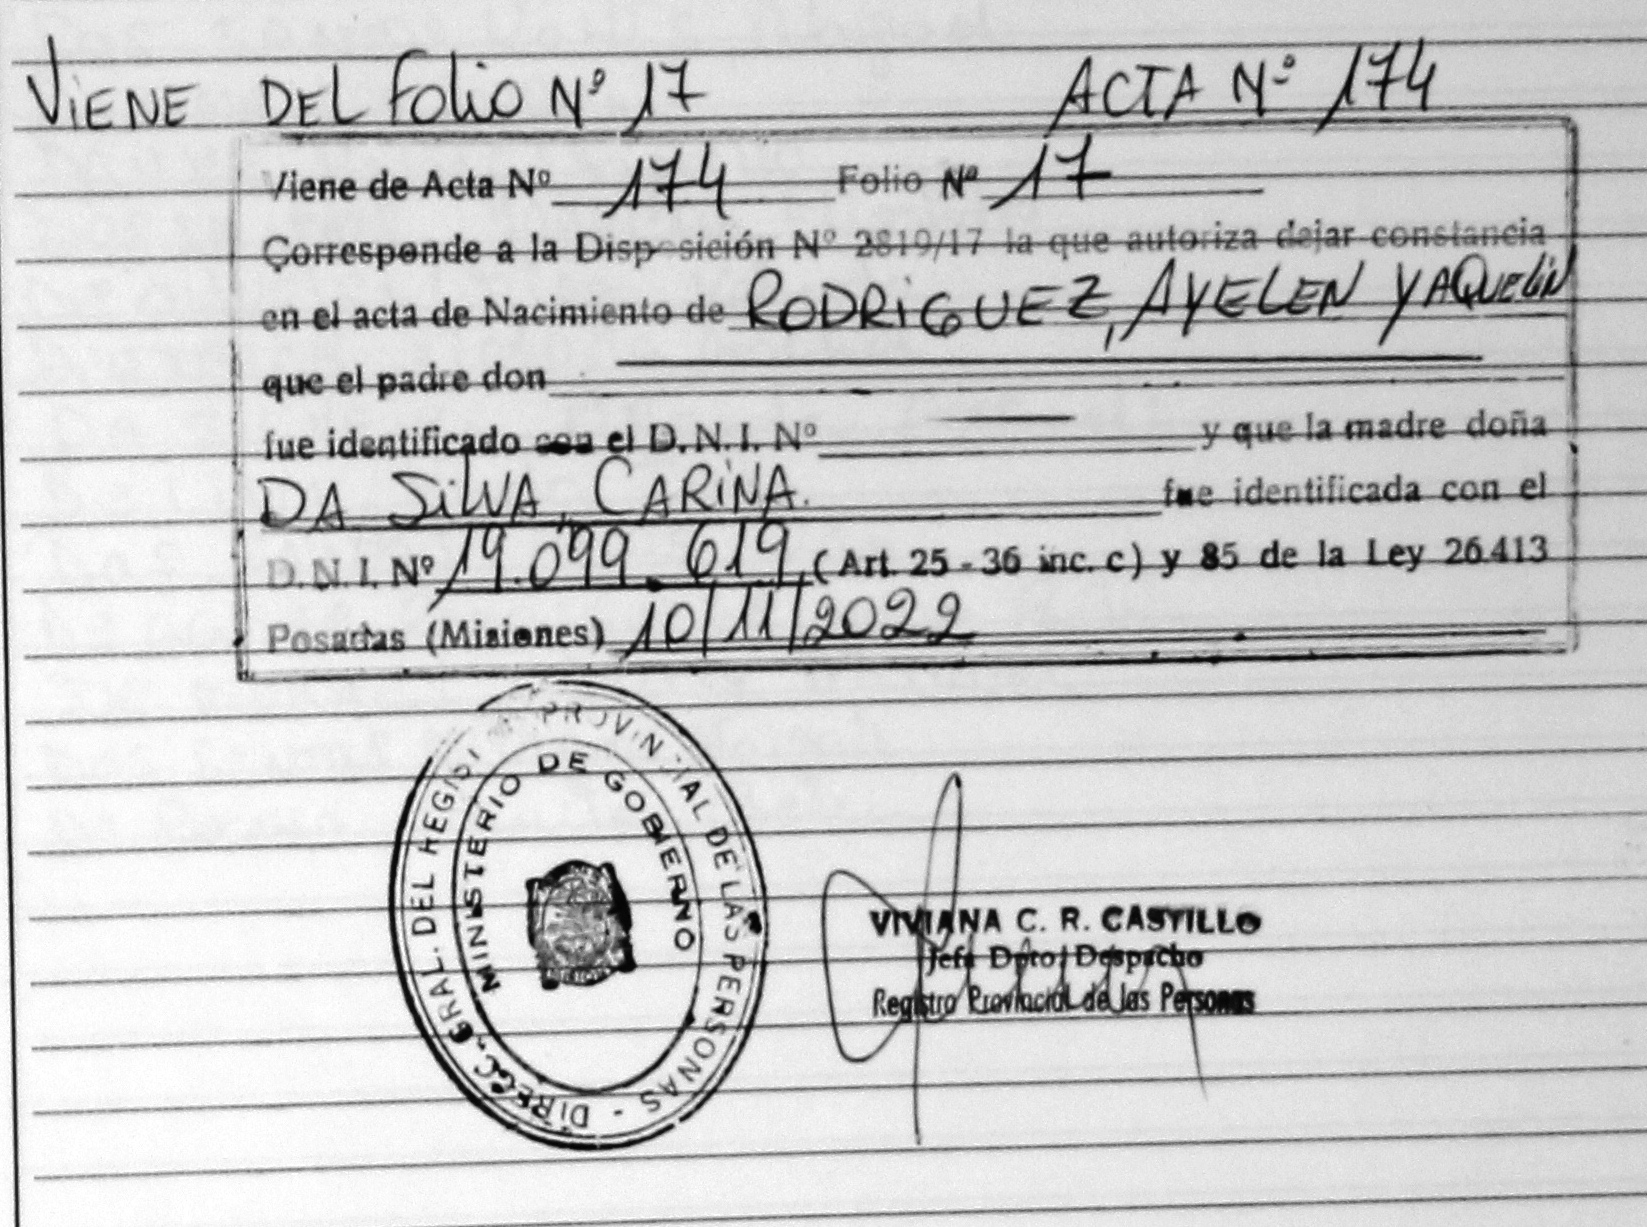 VIENE DEL FOLIO Nº 17 ACTA Nº 174
Viene de Acta Nº 174 Folio Nº 17
Corresponde a la Disposición Nº 2819/17 la que autoriza dejar constancia
en el acta de Nacimiento de RODRIGUEZ, AYELEN YAQUELIN
que el padre don
fue identificado con el D.N.I. Nº y que la madre doña
DA SILVA, CARINA. fue identificada con el
D.N.I. Nº 19.099.619 (Art. 25 - 36 inc. c) y 85 de la Ley 26.413
Posadas (Misiones) 10/11/2022
DIRECC. GRAL. DEL REGIST PROVINCIAL DE LAS PERSONAS -
MINISTERIO DE GOBIERNO
VIVIANA C. R. CASTILLO
Jefa Dpto. Despacho
Registro Provincial de las Personas